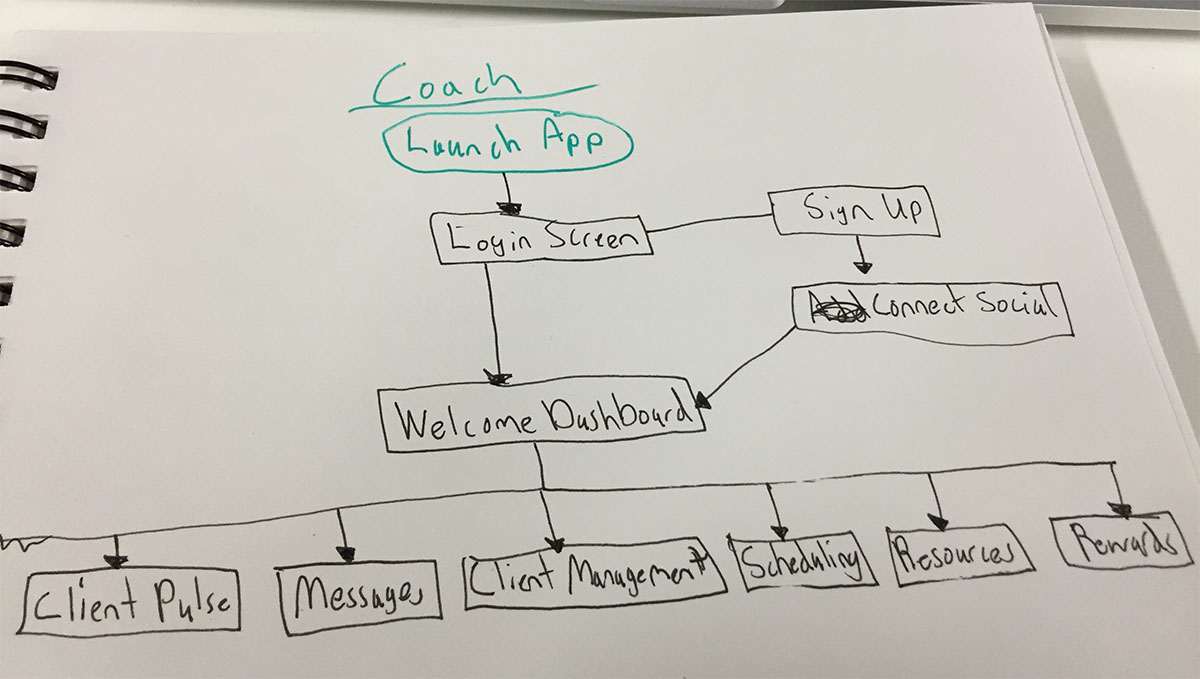 Coach
Launch App
Login Screen
Sign Up
Connect Social
Welcome Dashboard
Client Pulse
Messages
Client Management
Scheduling
Resources
Rewards